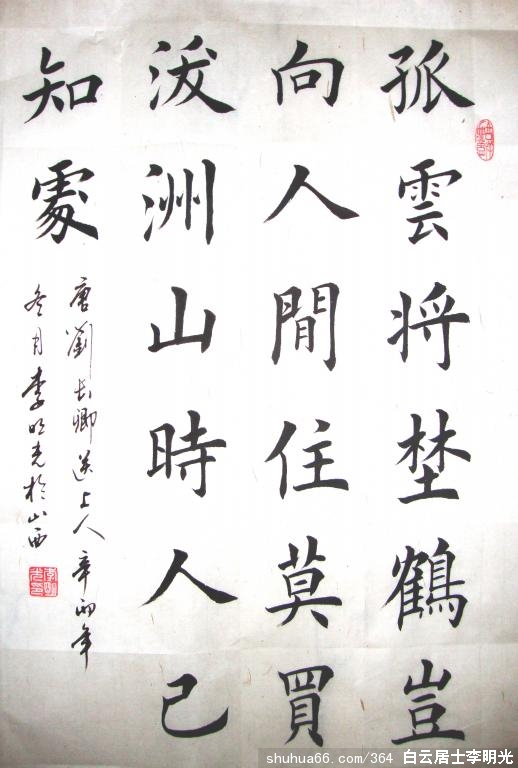 孤雲将埜鶴豈
向人閒住莫買
沷洲山時人已
知處
唐劉长卿送上人辛卯年
冬月李明光於山西
shuhua66.com/364 白云居士李明光